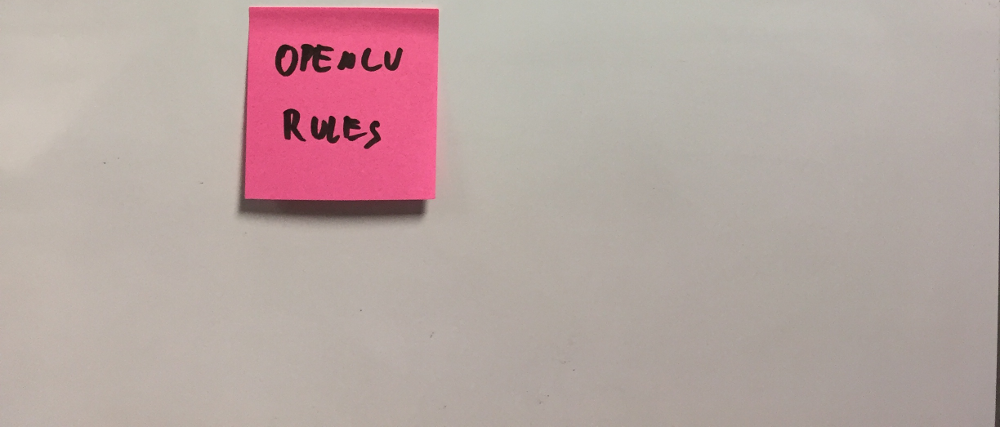 OPENCV
RULES